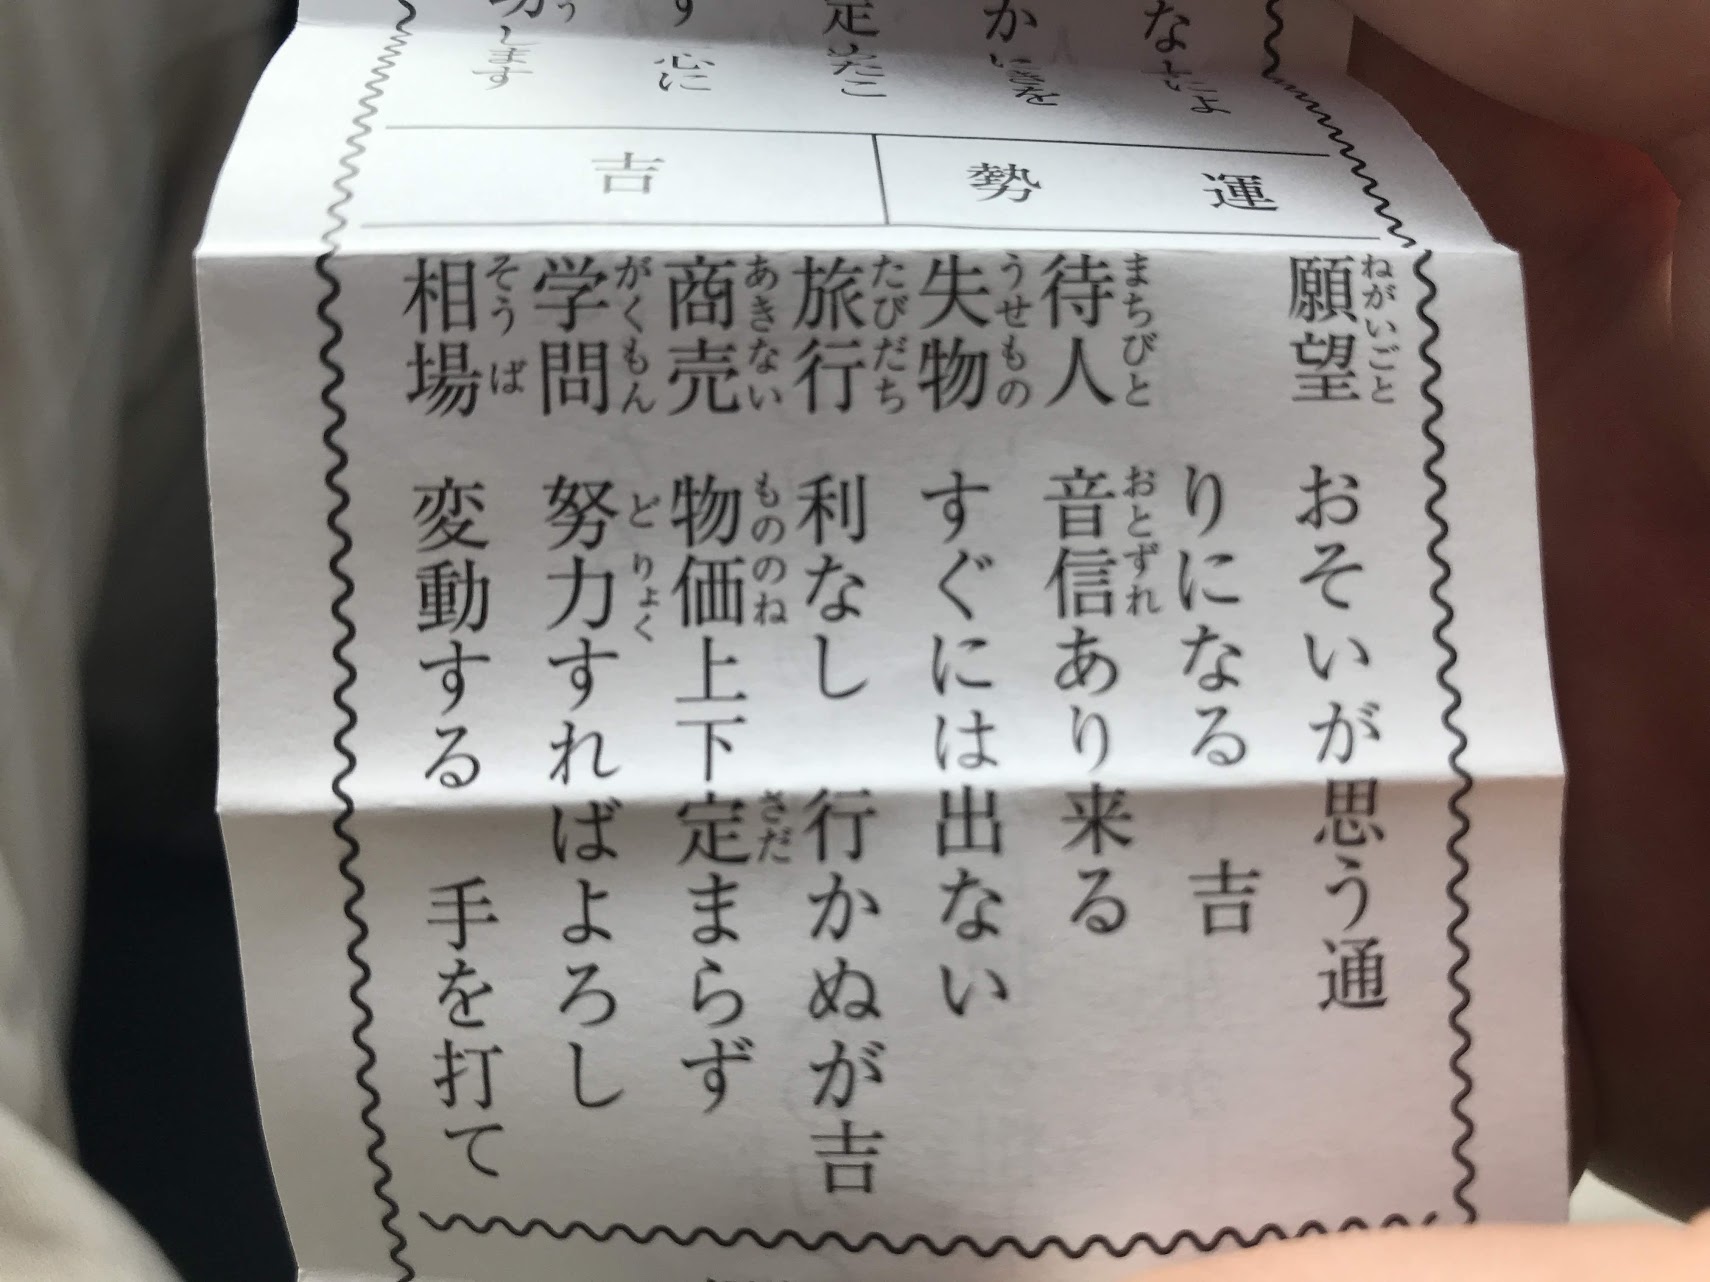 運勢
吉
願望 おそいが思う通
りになる 吉
待人 音信あり来る
失物 すぐには出ない
旅行 利なし 行かぬが吉
商売 物価上下定まらず
学問 努力すればよろし
相場 変動する 手を打て
ねがいごと
まちびと
おとずれ
うせもの
たびだち
あきない
もののね
さだ
がくもん
どりょく
そうば